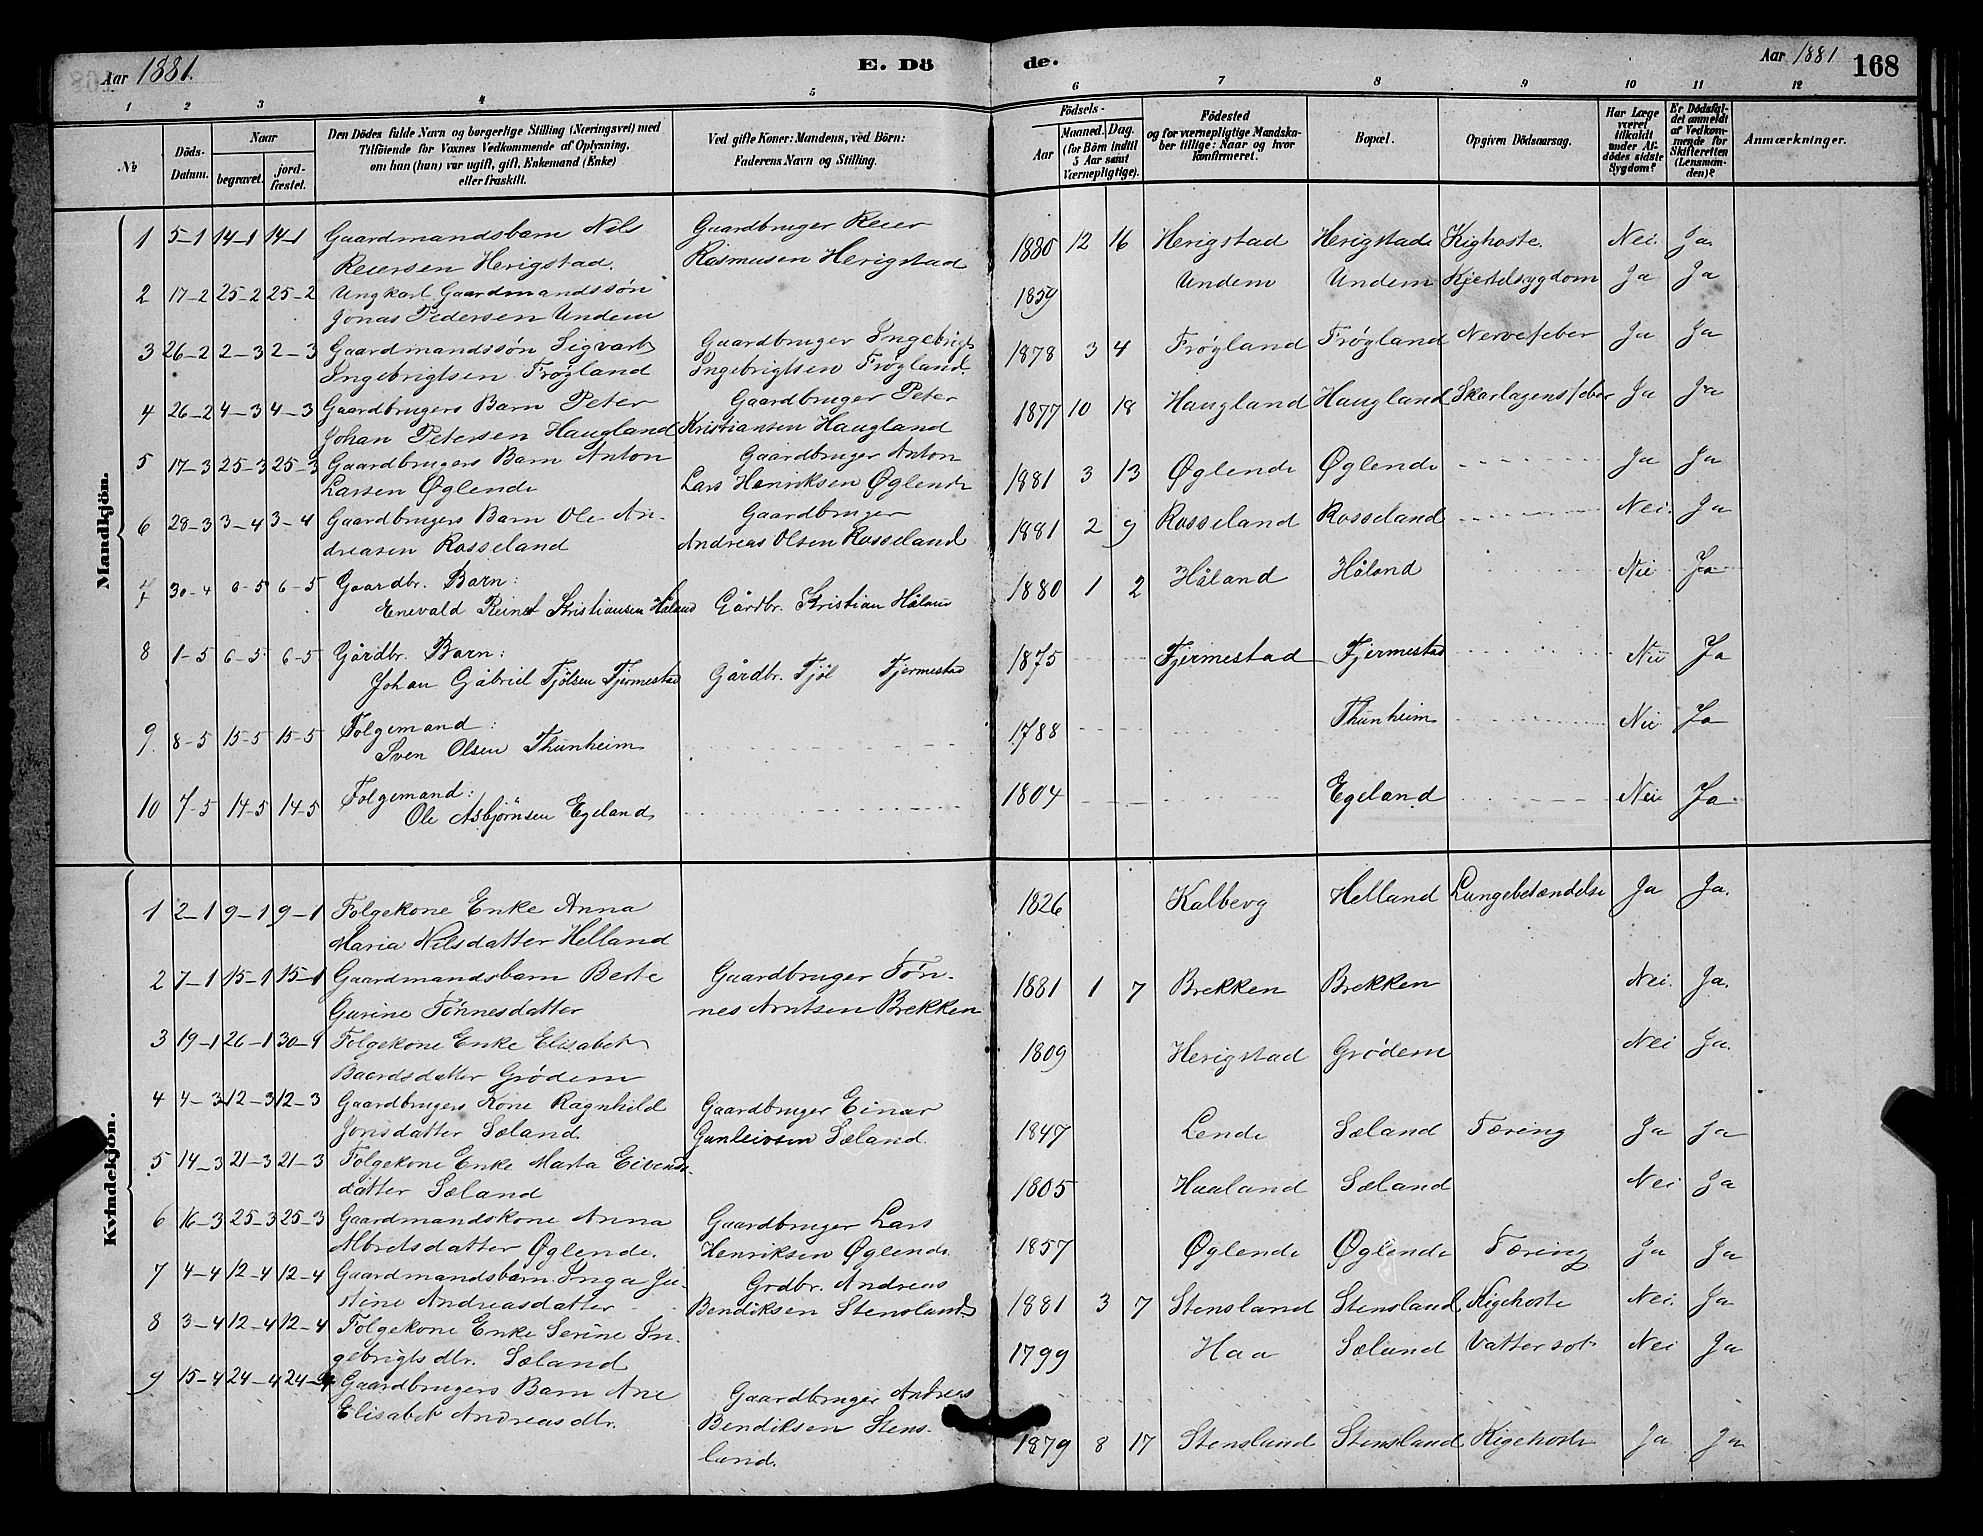 Aar 1881. E. Dö de. Aar 1881 168
1 2 3 4 5 6 7 8 9 10 11 12
№
Döds-
Datum.
Naar
begravet.
jord-
fæstet.
Den Dödes fulde Navn og borgerlige Stilling (Næringsvei) med
Tilföiende for Voxnes Vedkommende af Oplysning,
om han (hun) var ugift, gift, Enkemand (Enke)
eller fraskilt.
Ved gifte Koner: Mandens, ved Börn:
Faderens Navn og Stilling.
Födsels-
Aar
Maaned. Dag.
(for Börn indtil
5 Aar samt
Værnepligtige).
Födested
og for værnepligtige Mandska-
ber tillige: Naar og hvor
konfirmeret.
Bopæl.
Opgiven Dödsaarsag.
Har Læge
været
tilkaldt
under Af-
dödes sidste
Sygdom?
Er Dödsfal-
det anmeldt
af Vedkom-
mende for
Skifteretten
(Lensman-
den)?
Anmærkninger.
Mandkjön.
1 5-1 14-1 14-1 Gaardmandsbarn Nils Gaardbruger Reier 1880 12 16 Herigstad Herigstad Kighoste. Nei. Ja.
Reiersen Herigstad. Rasmusen Herigstad
2 17-2 25-2 25-2 Ungkarl Gaardmandssön 1859 Undem Undem Kjertelsygdom Ja Ja
Jonas Pedersen Undem
3 26-2 2-3 2-3 Gaardmandssön Sigvart Gaardbruger Ingebrigt 1878 3 4 Frøyland Frøyland Nervefeber Ja Ja
Ingebrigtsen Frøyland Ingebrigtsen Frøyland.
4 26-2 4-3 4-3 Gaardbrugers Barn Peter Gaardbruger Peter 1877 10 18 Haugland Haugland Skarlagensfeber Ja Ja
Johan Petersen Haugland Kristiansen Haugland
5 17-3 25-3 25-3 Gaardbrugers Barn Anton Gaardbruger Anton 1881 3 13 Øglende Øglende Ja Ja
Larsen Øglende Lars Henriksen Øglende
6 28-3 3-4 3-4 Gaardbrugers Barn Ole An- Gaardbruger 1881 2 9 Rosseland Rosseland Nei. Ja
dreasen Rosseland Andreas Olsen Rosseland
7 30-4 6-5 6-5 Gaardbr. Barn: 1880 1 2 Håland Håland Nei Ja
Enevald Reinert Kristiansen Håland Gårdbr. Kristian Håland
8 1-5 6-5 6-5 Gårdbr. Barn: 1875 Fjermestad Fjermestad Nei Ja
Johan Gabriel Fjølsen Fjermestad Gårdbr. Fjøl Fjermestad
9 8-5 15-5 15-5 Folgemand: 1788 Thunheim Nei Ja
Sven Olsen Thunheim
10 7-5 14-5 14-5 Folgemand: 1804 Egeland Nei Ja
Ole Asbjørnsen Egeland
Kvindekjön.
1 2-1 9-1 9-1 Folgekone Enke Anna 1826 Kalberg Helland Lungebetændelse Ja Ja.
Maria Nilsdatter Helland
2 7-1 15-1 15-1 Gaardmandsbarn Berte Gaardbruger Tøn- 1881 1 7 Brekken Brekken Nei. Ja.
Gurine Tønnesdatter nes Arntsen Brekken
3 19-1 26-1 30-1 Folgekone Enke Elisabet 1809 Herigstad Grødem Nei Ja.
Baardsdatter Grødem
4 4-3 12-3 12-3 Gaardbrugers Kone Ragnhild Gaardbruger Einar 1847 Lende Sæland Tæring Ja Ja
Jonsdatter Sæland. Gunleivsen Sæland.
5 14-3 21-3 21-3 Folgekone Enke Marta Eivends- 1805 Haaland Sæland Nei Ja
datter Sæland
6 16-3 25-3 25-3 Gaardmandskone Anna Gaardbruger Lars 1857 Øglende Øglende Tæring Ja Ja
Albretsdatter Øglende. Henriksen Øglende.
7 4-4 12-4 12-4 Gaardmandsbarn Inga Ju- Grdbr. Andreas 1881 3 7 Stensland Stensland Kigehoste Nei. Ja
stine Andreasdatter Bendiksen Stensland.
8 3-4 12-4 12-4 Folgekone Enke Serine In- 1799 Haa Sæland Vattersot Nei Ja
gebrigtsdtr. Sæland
9 15-4 24-4 24-4 Gaardbrugers Barn Ane Gaardbruger Andreas 1879 8 17 Stensland Stensland Kigehoste Ja Ja
Elisabet Andreasdtr. Bendiksen Stens-
land.